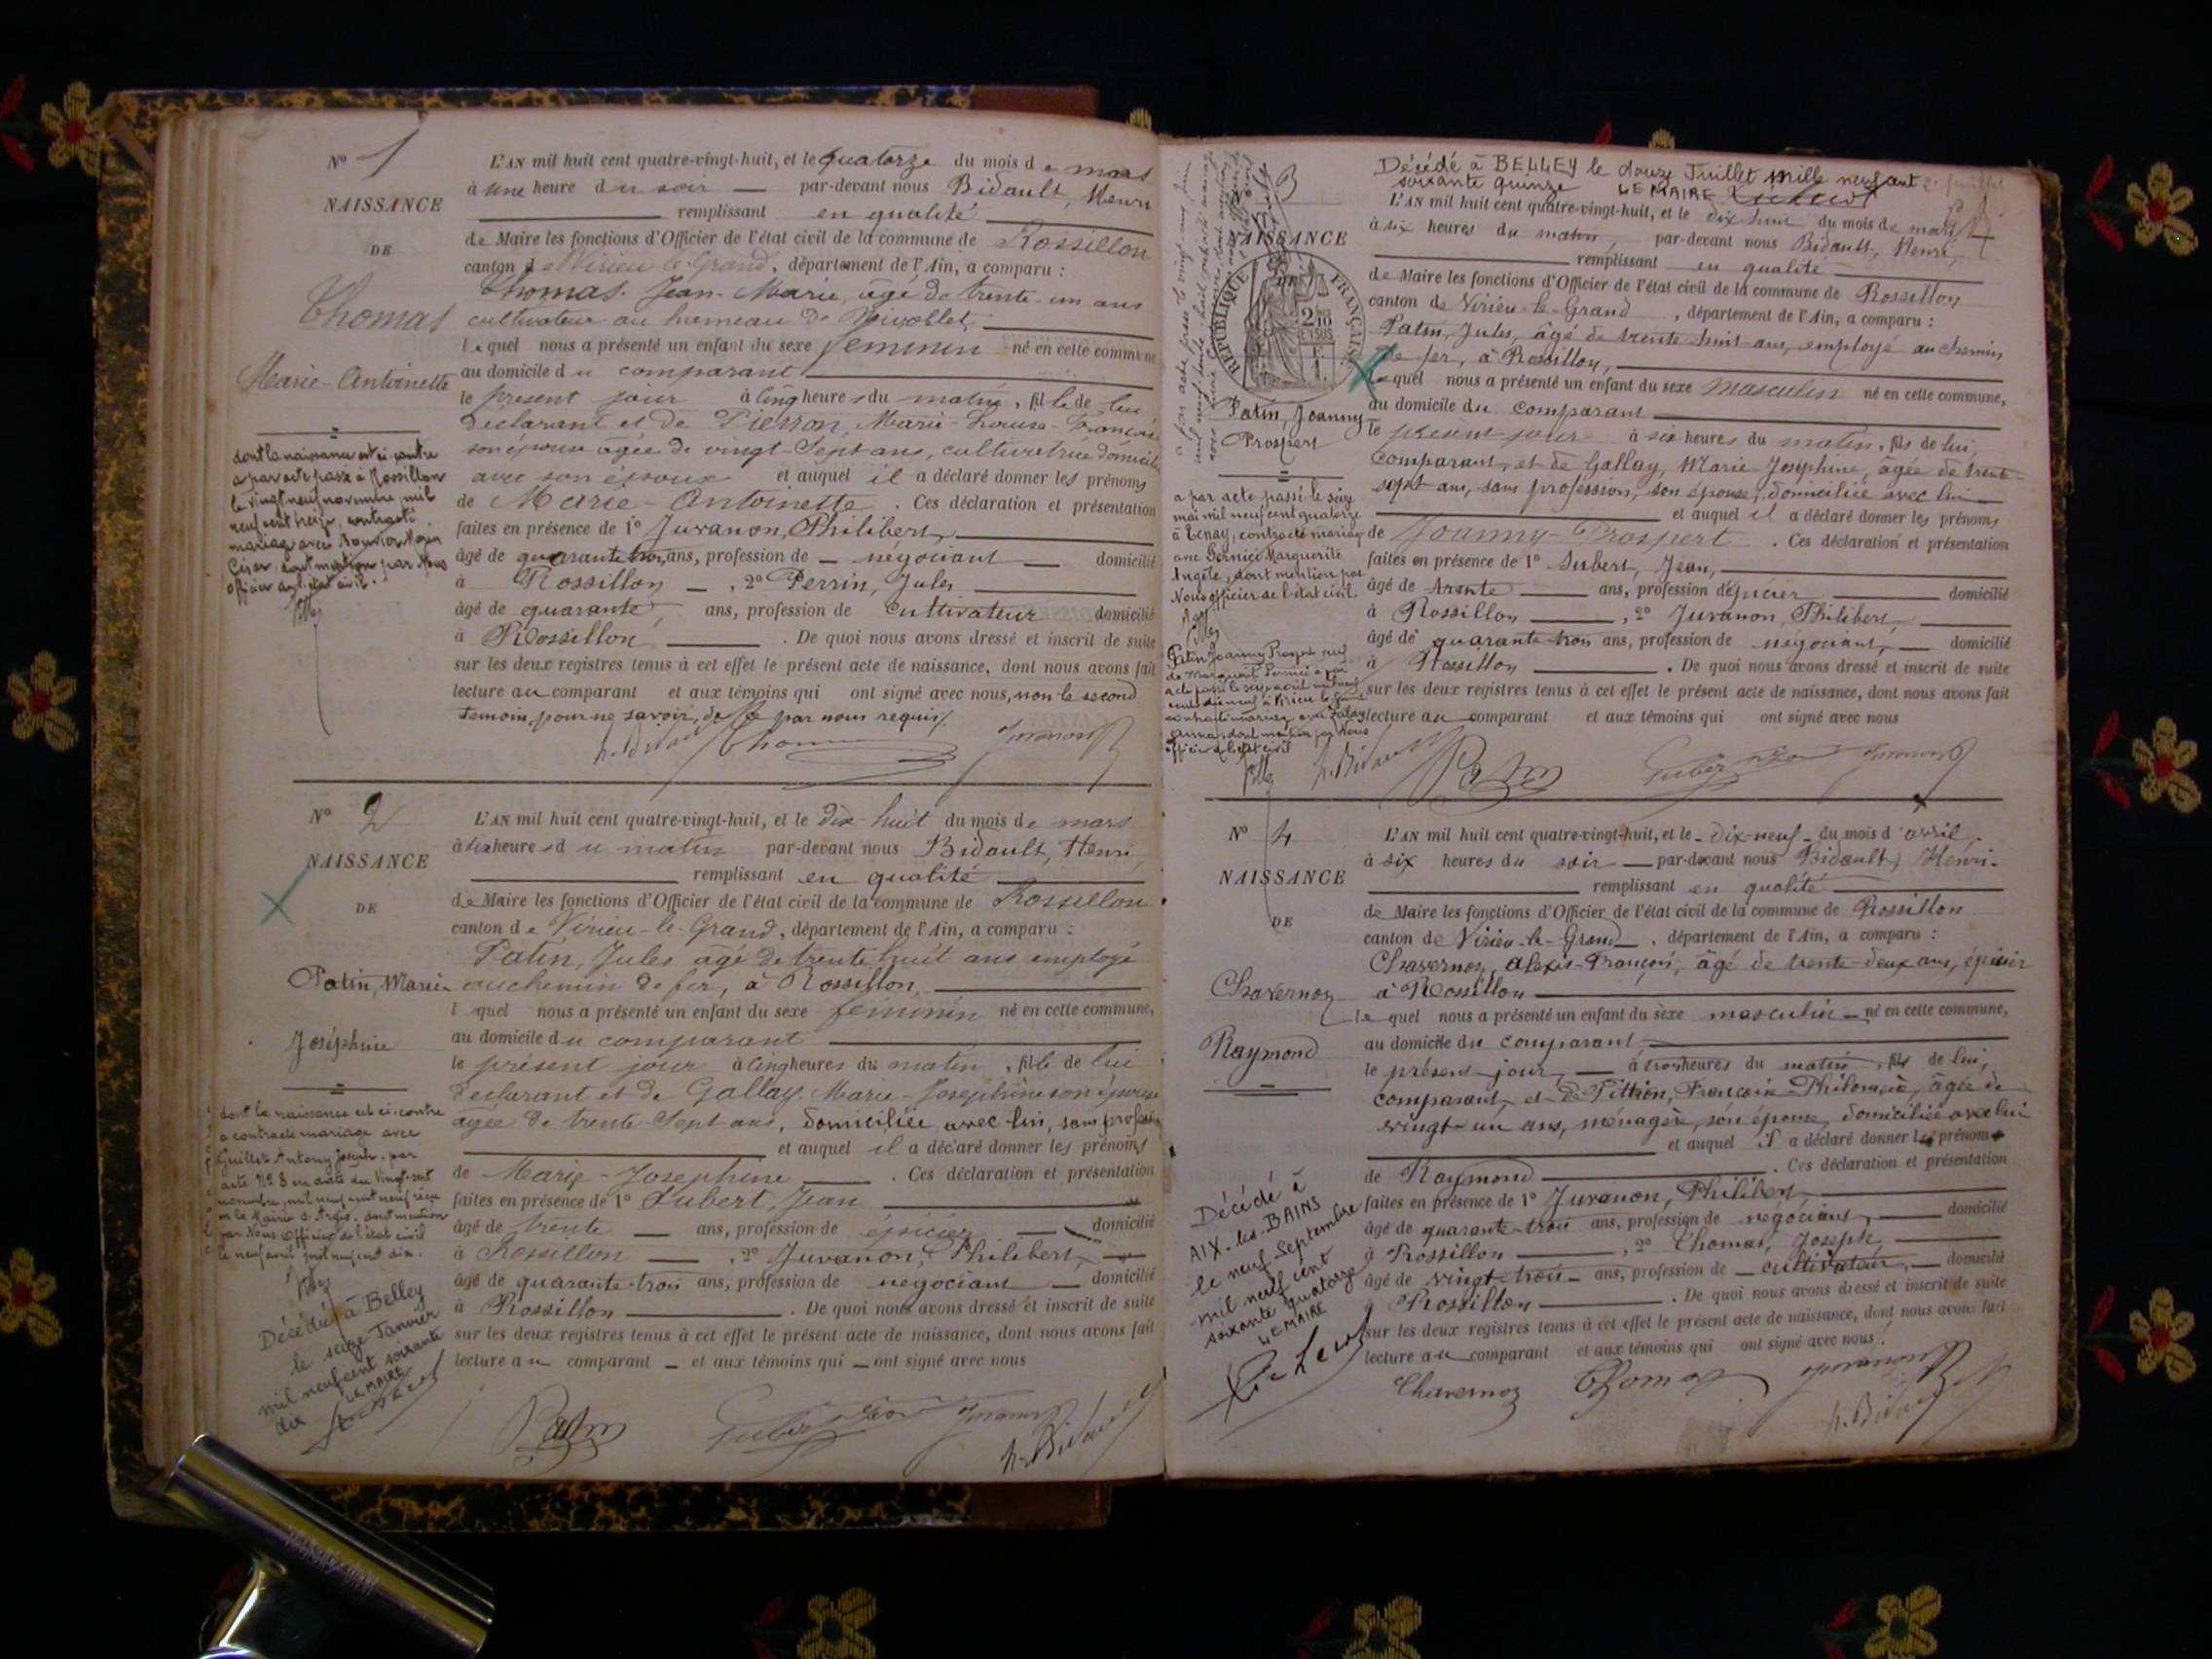 N° 1
NAISSANCE
DE
Thomas
Marie-Antoinette
dont la naissance est ci-contre
a par acte passé à Rossillon
le vingt neuf novembre mil
neuf cent treize, contracté
mariage avec
César, dont mention par Nous
officier de l'état civil.
L'AN mil huit cent quatre-vingt-huit, et le quatorze du mois de mars
à une heure du soir — par-devant nous Bidault, Henri
remplissant en qualité
de Maire les fonctions d'Officier de l'état civil de la commune de Rossillon
canton de Virieu-le-Grand, département de l'Ain, a comparu :
Thomas Jean-Marie, âgé de trente-un ans
cultivateur au hameau de
lequel nous a présenté un enfant du sexe féminin né en cette commune
au domicile du comparant
le présent jour à cinq heures du matin, fille de lui
déclarant et de Pierron, Marie-Louise-Françoise
son épouse âgée de vingt-sept ans, cultivatrice domiciliée
avec son époux et auquel il a déclaré donner les prénoms
de Marie-Antoinette. Ces déclaration et présentation
faites en présence de 1° Juvanon, Philibert,
âgé de quarante trois ans, profession de — négociant — domicilié
à Rossillon —, 2° Perrin, Jules
âgé de quarante, ans, profession de cultivateur domicilié
à Rossillon. De quoi nous avons dressé et inscrit de suite
sur les deux registres tenus à cet effet le présent acte de naissance, dont nous avons fait
lecture au comparant et aux témoins qui ont signé avec nous, non le second
témoin, pour ne savoir, de ce par nous requis.
h. Bidault Thomas Juvanon
N° 2
NAISSANCE
DE
Patin, Marie
Joséphine
dont la naissance est ci-contre
a contracté mariage avec
Guillet Antony Joseph, par
acte N° 8 en date du vingt-sept
novembre, mil neuf cent neuf reçu
en la Mairie d'Argis, dont mention
par Nous Officier de l'état civil
le neuf avril mil neuf cent dix.
Décédée à Belley
le seize Janvier
mil neuf cent soixante
dix LE MAIRE
L'AN mil huit cent quatre-vingt-huit, et le dix-huit du mois de mars
à six heures du matin par-devant nous Bidault, Henri,
remplissant en qualité
de Maire les fonctions d'Officier de l'état civil de la commune de Rossillon
canton de Virieu-le-Grand, département de l'Ain, a comparu :
Patin, Jules âgé de trente huit ans employé
au chemin de fer, à Rossillon,
lequel nous a présenté un enfant du sexe féminin né en cette commune,
au domicile du comparant
le présent jour à cinq heures du matin, fille de lui
déclarant et de Gallay, Marie-Joséphine son épouse
âgée de trente-sept ans, domiciliée avec lui, sans profession
et auquel il a déclaré donner les prénoms
de Marie-Joséphine. Ces déclaration et présentation
faites en présence de 1° Subert, Jean
âgé de trente — ans, profession de épicier — domicilié
à Rossillon —, 2° Juvanon, Philibert,
âgé de quarante-trois ans, profession de négociant — domicilié
à Rossillon. De quoi nous avons dressé et inscrit de suite
sur les deux registres tenus à cet effet le présent acte de naissance, dont nous avons fait
lecture au comparant — et aux témoins qui — ont signé avec nous
Patin Subert Jean Juvanon h. Bidault
3
NAISSANCE
RÉPUBLIQUE FRANÇAISE
Patin, Joanny
Prospert
a par acte passé le seize
mai mil neuf cent quatorze
à Tenay, contracté mariage
avec Pernice Marguerite
Angèle, dont mention par
Nous officier de l'état civil.
Patin Joanny Prospert veuf
de Marguerite Pernice a par
acte passé le seize août mil neuf
cent dix neuf à Virieu le Grand
contracté mariage avec
Anna, dont mention par Nous
officier de l'état civil
Décédé à BELLEY le douze Juillet mille neuf cent
soixante quinze LE MAIRE
L'AN mil huit cent quatre-vingt-huit, et le dix huit du mois de mars
à six heures du matin, par-devant nous Bidault, Henri,
remplissant en qualité
de Maire les fonctions d'Officier de l'état civil de la commune de Rossillon
canton de Virieu-le-Grand, département de l'Ain, a comparu :
Patin, Jules, âgé de trente huit ans, employé au chemin
de fer, à Rossillon,
lequel nous a présenté un enfant du sexe masculin né en cette commune,
au domicile du comparant
le présent jour à six heures du matin, fils de lui,
comparant, et de Gallay, Marie Joséphine, âgée de trente-
sept ans, sans profession, son épouse, domiciliée avec lui
et auquel il a déclaré donner les prénoms
de Joanny-Prospert. Ces déclaration et présentation
faites en présence de 1° Subert, Jean,
âgé de trente ans, profession d'épicier domicilié
à Rossillon, 2° Juvanon, Philibert
âgé de quarante trois ans, profession de négociant, — domicilié
à Rossillon. De quoi nous avons dressé et inscrit de suite
sur les deux registres tenus à cet effet le présent acte de naissance, dont nous avons fait
lecture au comparant et aux témoins qui ont signé avec nous
h. Bidault Patin Subert Jean Juvanon
N° 4
NAISSANCE
DE
Chavernoz
Raymond
Décédé à
AIX-les-BAINS
le neuf Septembre
mil neuf cent
soixante quatorze
LE MAIRE
L'AN mil huit cent quatre-vingt-huit, et le dix-neuf du mois d'avril,
à six heures du soir — par-devant nous Bidault, Henri
remplissant en qualité
de Maire les fonctions d'Officier de l'état civil de la commune de Rossillon
canton de Virieu-le-Grand, département de l'Ain, a comparu :
Chavernoz, Alexis-François, âgé de trente-deux ans, épicier
à Rossillon
lequel nous a présenté un enfant du sexe masculin — né en cette commune,
au domicile du comparant
le présent jour, — à trois heures du matin, fils de lui,
comparant, et de Pittion, Françoise-Philomène, âgée de
vingt-un ans, ménagère, son épouse, domiciliée avec lui
et auquel il a déclaré donner le prénom
de Raymond. Ces déclaration et présentation
faites en présence de 1° Juvanon, Philibert,
âgé de quarante-trois ans, profession de négociant, domicilié
à Rossillon, 2° Thomas, Joseph,
âgé de vingt-trois — ans, profession de — cultivateur, — domicilié
à Rossillon. De quoi nous avons dressé et inscrit de suite
sur les deux registres tenus à cet effet le présent acte de naissance, dont nous avons fait
lecture au comparant et aux témoins qui ont signé avec nous.
Chavernoz Thomas Juvanon
h. Bidault